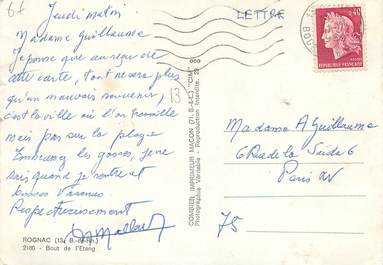 6f
Jeudi matin
Madame Guillaume
Je pense que au reçu de
cette carte, tout ne sera plus
qu'un mauvais souvenir,
c'est la ville où l'on travaille
mais pas sur la plage
les gosses, je ne
sais quand je rentre et
bonnes Vacances
Respectueusement
13
ROGNAC (13, B.-du-Rh.)
2180 - Bout de l'Etang
COMBIER IMPRIMEUR MACON (71, S.-&-L.) "CIM"
Photographie Véritable - Reproduction Interdite
LETTRE
0,40
REPUBLIQUE FRANÇAISE
Madame A Guillaume
6 Rue de la
Paris IV
75